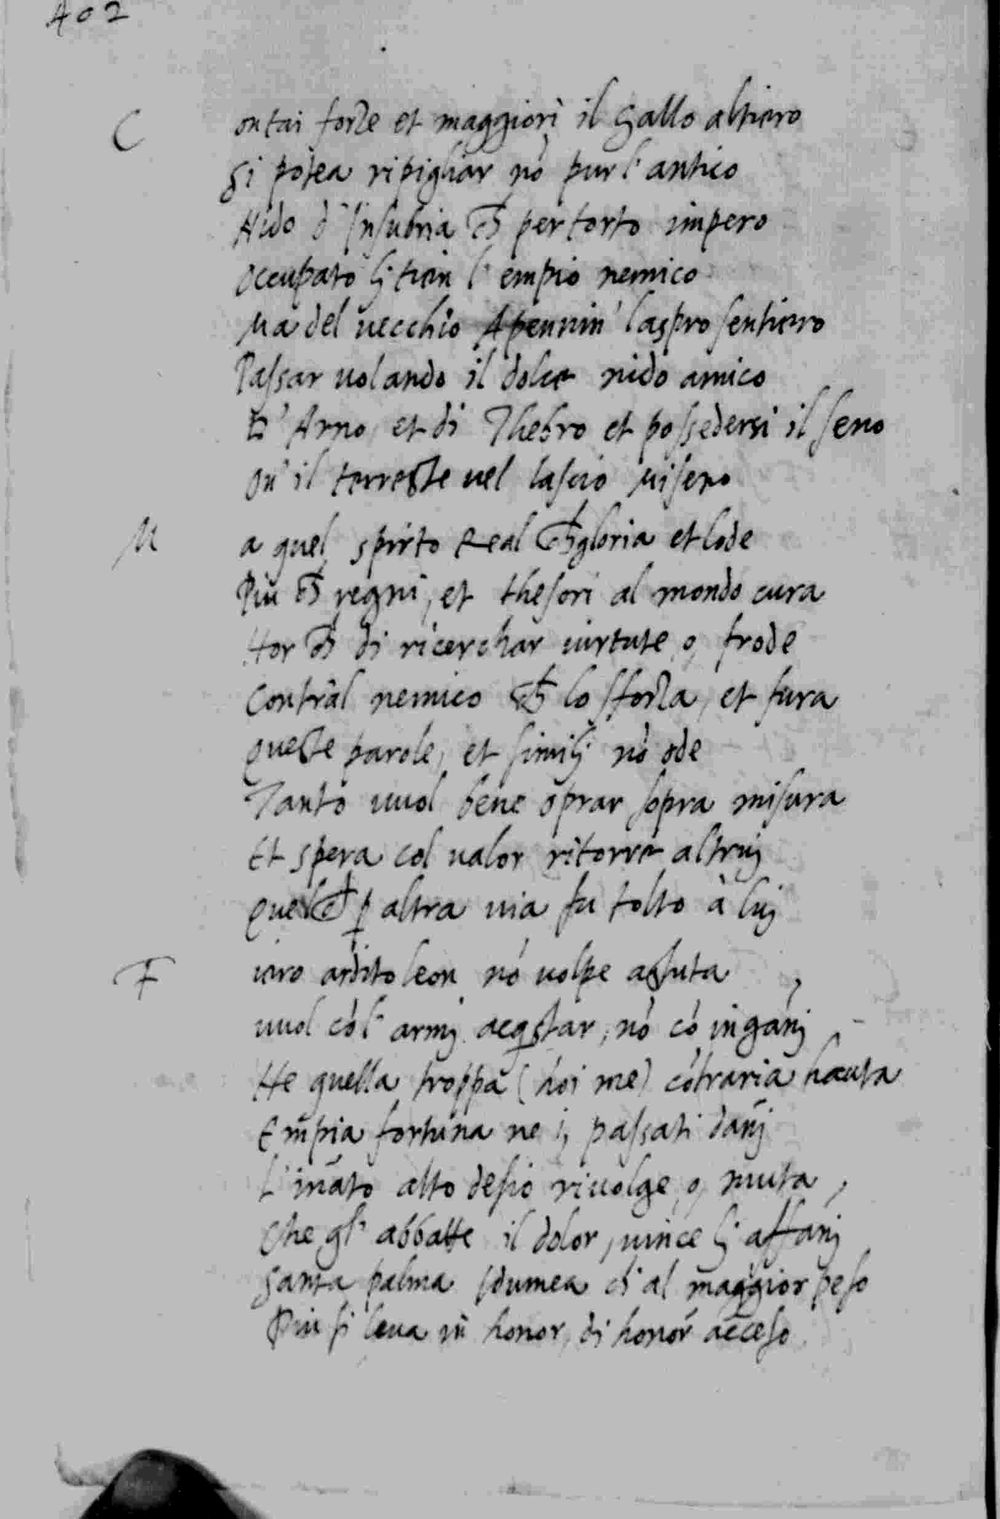 402
C ontai forze et maggiori il Gallo altiero
Si potea ripigliar nō pur l'antico
Nido d'Insubria ch̄ per torto impero
Occupato gli tien l'empio nemico
Ma del vecchio Apennin l'aspro sentiero
Passar volando il dolce nido amico
D'Arno, et di Thebro et possedersi il seno
Ou' il terrestre vel lascio Miseno
M a quel spirto Real ch̄ gloria et lode
Piu ch̄ regni, et thesori al mondo cura
Hor ch̄ di ricerchar virtute, o, frode
Contra'l nemico ch̄ lo sforza, et fura
Queste parole, et simili nō ode
Tanto vuol bene oprar sopra misura
Et spera col valor ritorre altrui
Quel ch̄ ꝑ altra via fu tolto à lui
F iero ardito leon nō volpe astuta
vuol cō l'armi acqstar, nō cō ingāni
Ne quella troppa (hoi me) cōtraria hauta
Empia fortuna ne i passati dāni
L'ināto alto desio rivolge, o, muta,
Che gl'abbatte il dolor, vince gli affāni
Santa palma Idumea ch'al maggior peso
Piu si leva in honor, di honor acceso